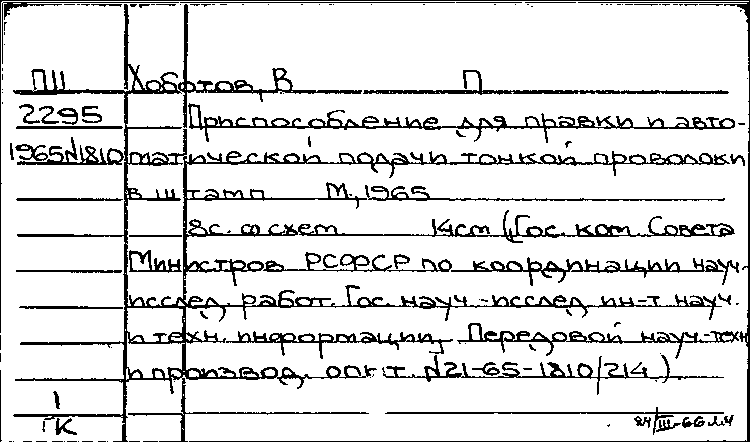 ПШ Хоботов, В П
2295 Приспособление для правки и авто-
1965N1810 матической подачи тонкой проволоки
в штамп М., 1965
8с. со схем. 14cm (Гос. ком. Совета
Министров РСФСР по координации науч.-
исслед. работ. Гос. науч.-исслед. ин-т науч.
и техн. информации. Передовой науч.-техн
и производ. опыт. N21-65-1810/214).
1
ГК 24/III-66